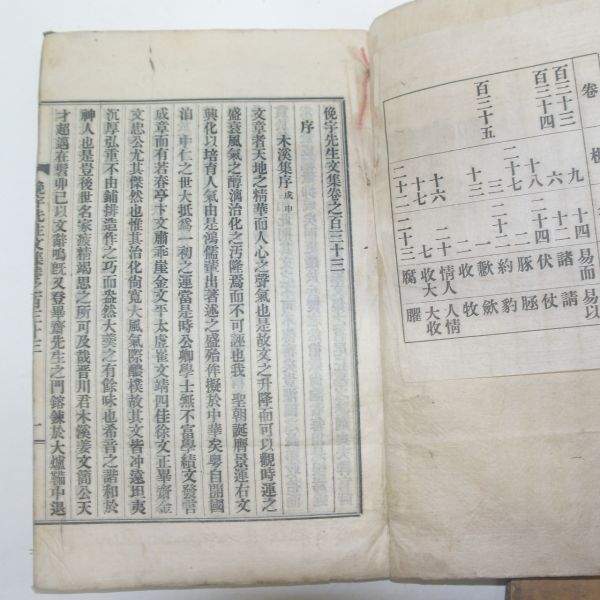 卷
百三十三
百三十四
百三十五
板
九
六
十八
二十七
十三
十六
十七
二十二
十四 易而 易以
十一 諸 請
也二 伏 仗
二 豚
一 約 豹
一 歉 歛
二 收 牧
二十 情人 人情
七 收大 大收
二十三 腐 臞
俛宇先生文集卷之百三十三
序
木溪集序 戊申
文章者天地之精華而人心之聲氣也是故文之升降而可以觀時運之
盛衰風氣之醇漓治化之汚隆焉而不可誣也我 聖朝誕膺景運右文
興化以培育人氣由是鴻儒輩出著述之盛殆侔擬於中華矣粵自開國
泊 中仁之世大抵爲一初之運當是時公卿學士無不富學績文發言
成章而有若春亭卞文肅乖崖金文平太虛崔文靖四佳徐文正畢齋金
文忠公尤其傑然也惟其治化尙寬大風氣際醲樸故其文皆冲遠坦夷
沉厚弘重不由鋪排造作之巧而盎然大羹之有餘味也希音之諧和於
神人也是豈後世名家疲精竭思之所可及哉晋川君木溪姜文簡公天
才超邁在髫丱已以文辭鳴旣又登畢齋先生之門鎔鍊於大爐鞴中退
俛宇先生文集卷之百三十三 一